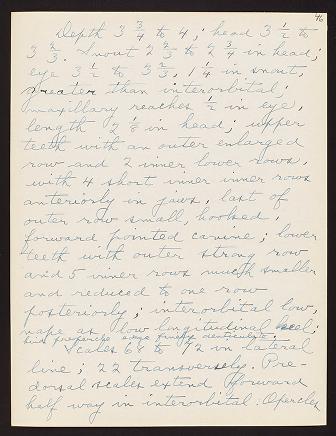 46
Depth 3 3/4 to 4; head 3 1/2 to
3 2/3. Snout 2 2/3 to 2 3/4 in head;
eye 3 1/2 to 3 2/3, 1 1/4 in snout,
greater than interorbital;
maxillary reaches 1/2 in eye,
length 2 1/8 in head; upper
teeth with an outer enlarged
row and 2 inner lower rows,
with 4 short inner inner rows
anteriorly in jaws, last of
outer row small, hooked,
forward pointed canine; lower
teeth with outer strong row
and 5 inner rows much smaller
and reduced to one row
posteriorly; interorbital low,
nape as low longitudinal keel;
hind preopercle edge finely denticulate.
Scales 68 to 72 in lateral
line; 22 transversely. Pre-
dorsal scales extend forward
half way in interorbital. Opercles